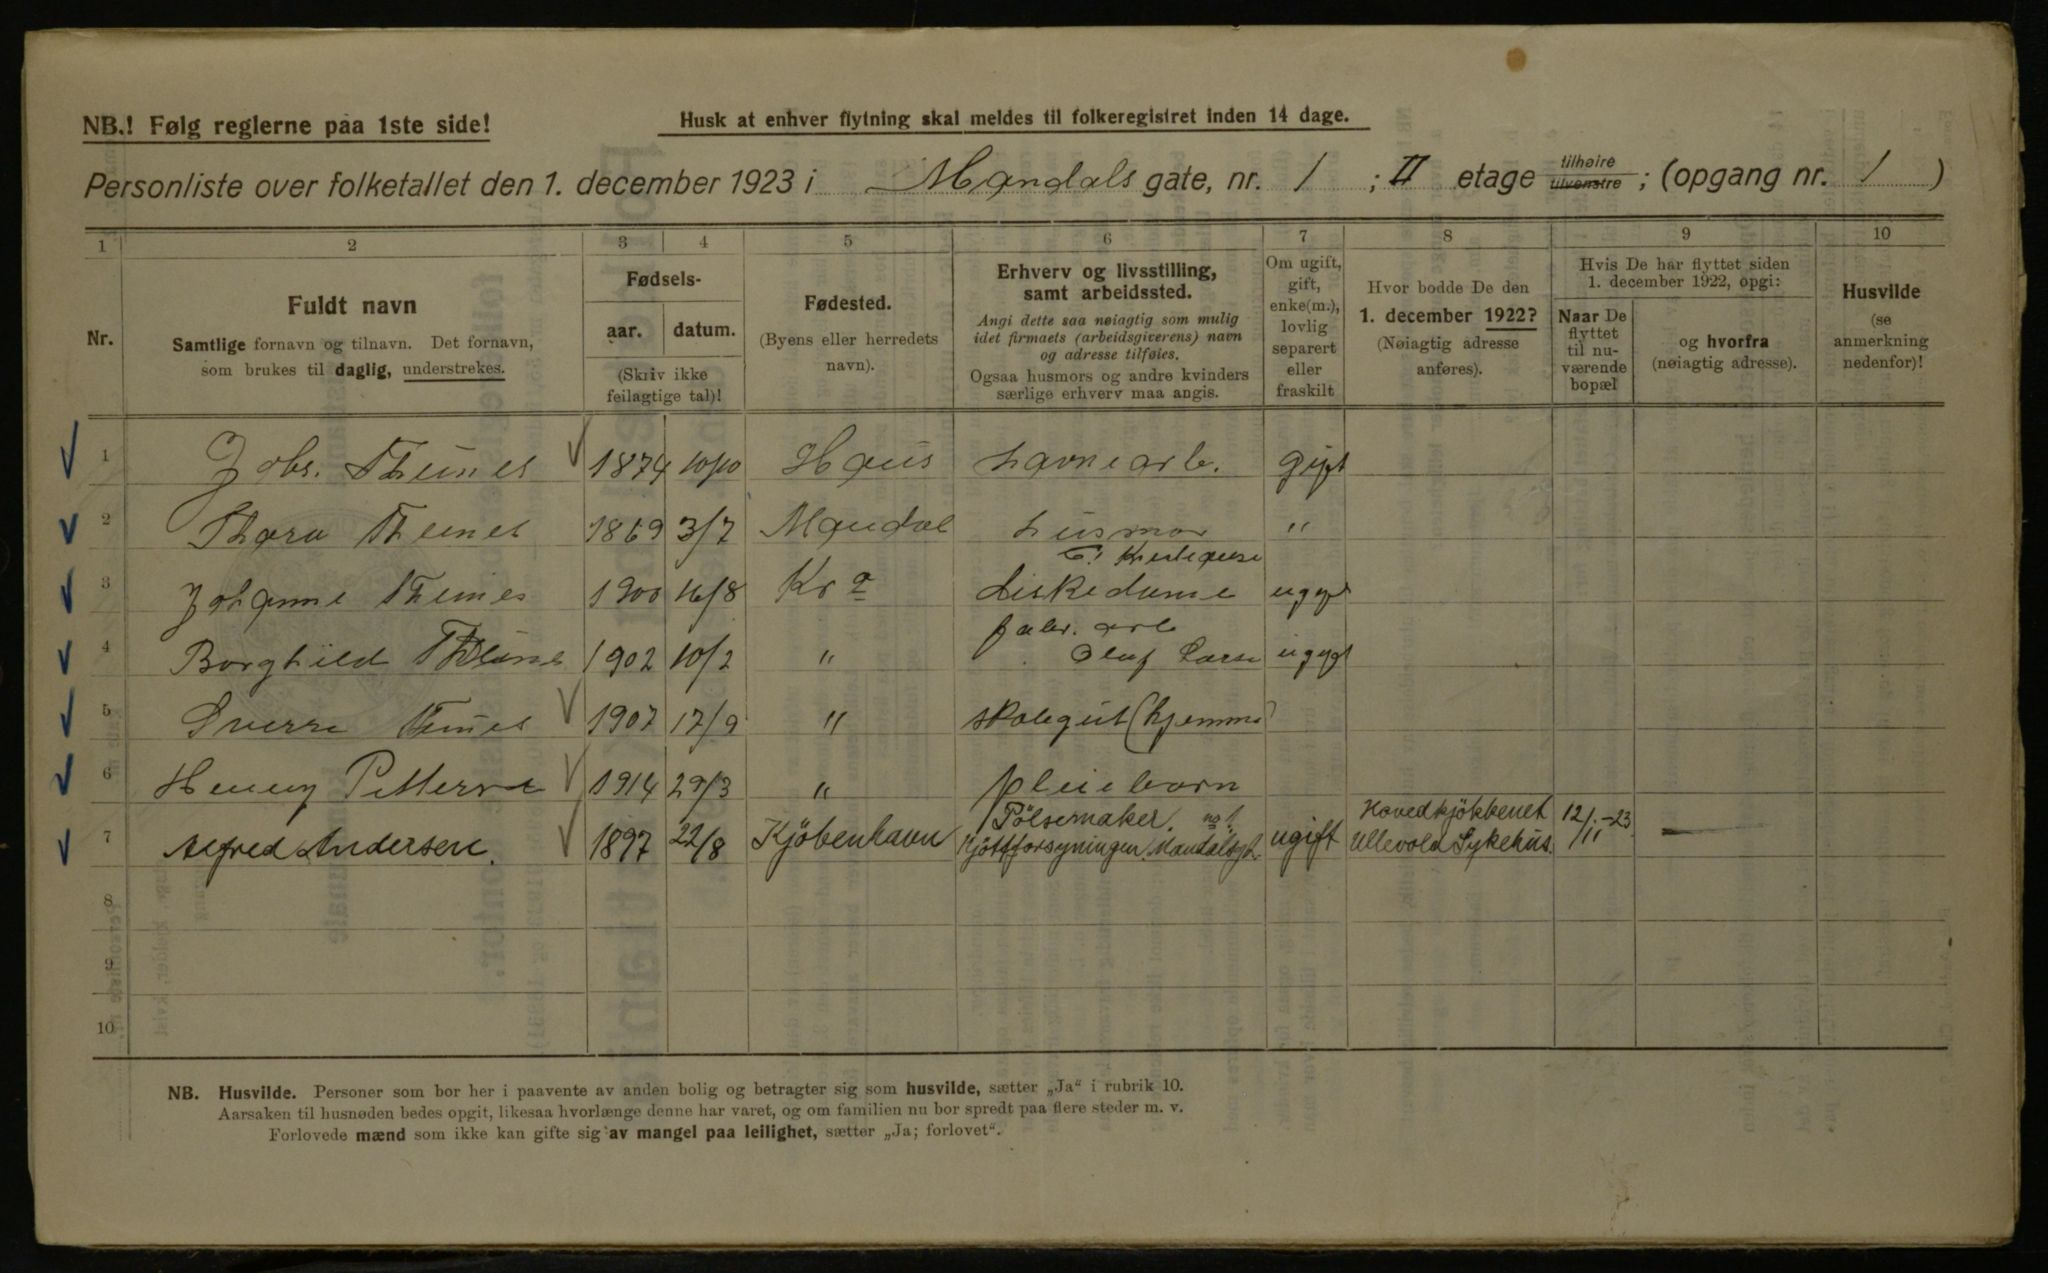 NB.! Følg reglerne paa 1ste side!
Husk at enhver flytning skal meldes til folkeregistret inden 14 dage.
Personliste over folketallet den 1. december 1923 i Mandals gate, nr. 1 ; II etage tilhøire tilvenstre ; (opgang nr. 1 )
1 2 3 4 5 6 7 8 9 10
Nr.
Fuldt navn
Samtlige fornavn og tilnavn. Det fornavn,
som brukes til daglig, understrekes.
Fødsels-
aar. datum.
(Skriv ikke
feilagtige tal)!
Fødested.
(Byens eller herredets
navn).
Erhverv og livsstilling,
samt arbeidssted.
Angi dette saa nøiagtig som mulig
idet firmaets (arbeidsgiverens) navn
og adresse tilføies.
Ogsaa husmors og andre kvinders
særlige erhverv maa angis.
Om ugift,
gift,
enke(m.),
lovlig
separert
eller
fraskilt
Hvor bodde De den
1. december 1922?
(Nøiagtig adresse
anføres).
Hvis De har flyttet siden
1. december 1922, opgi:
Naar De
flyttet
til nu-
værende
bopæl
og hvorfra
(nøiagtig adresse).
Husvilde
(se
anmerkning
nedenfor)!
1 Johs. Thunes 1874 10/10 Haus havnearb. gift
2 Thora Thunes 1869 3/7 Mandal husmor "
3 Johanne Thunes 1900 16/8 Kra diskedame ugift
fabr. arb
4 Borghild Thunes 1902 10/2 " Oluf Larse ugift
5 Sverre Thunes 1907 17/9 " skolegut (hjemme)
6 Henny Petterse 1914 29/3 " pleiebarn
7 Alfred Andersen. 1897 22/8 Kjöbenhavn Pölsemaker. no 1. Kjöttforsyningen. Mandalsgt. ugift Hovedkjökkenet Ullevold Sykehus. 12/11-23 —
8
9
10
NB. Husvilde. Personer som bor her i paavente av anden bolig og betragter sig som husvilde, sætter „Ja" i rubrik 10.
Aarsaken til husnøden bedes opgit, likesaa hvorlænge denne har varet, og om familien nu bor spredt paa flere steder m. v.
Forlovede mænd som ikke kan gifte sig av mangel paa leilighet, sætter „Ja; forlovet".